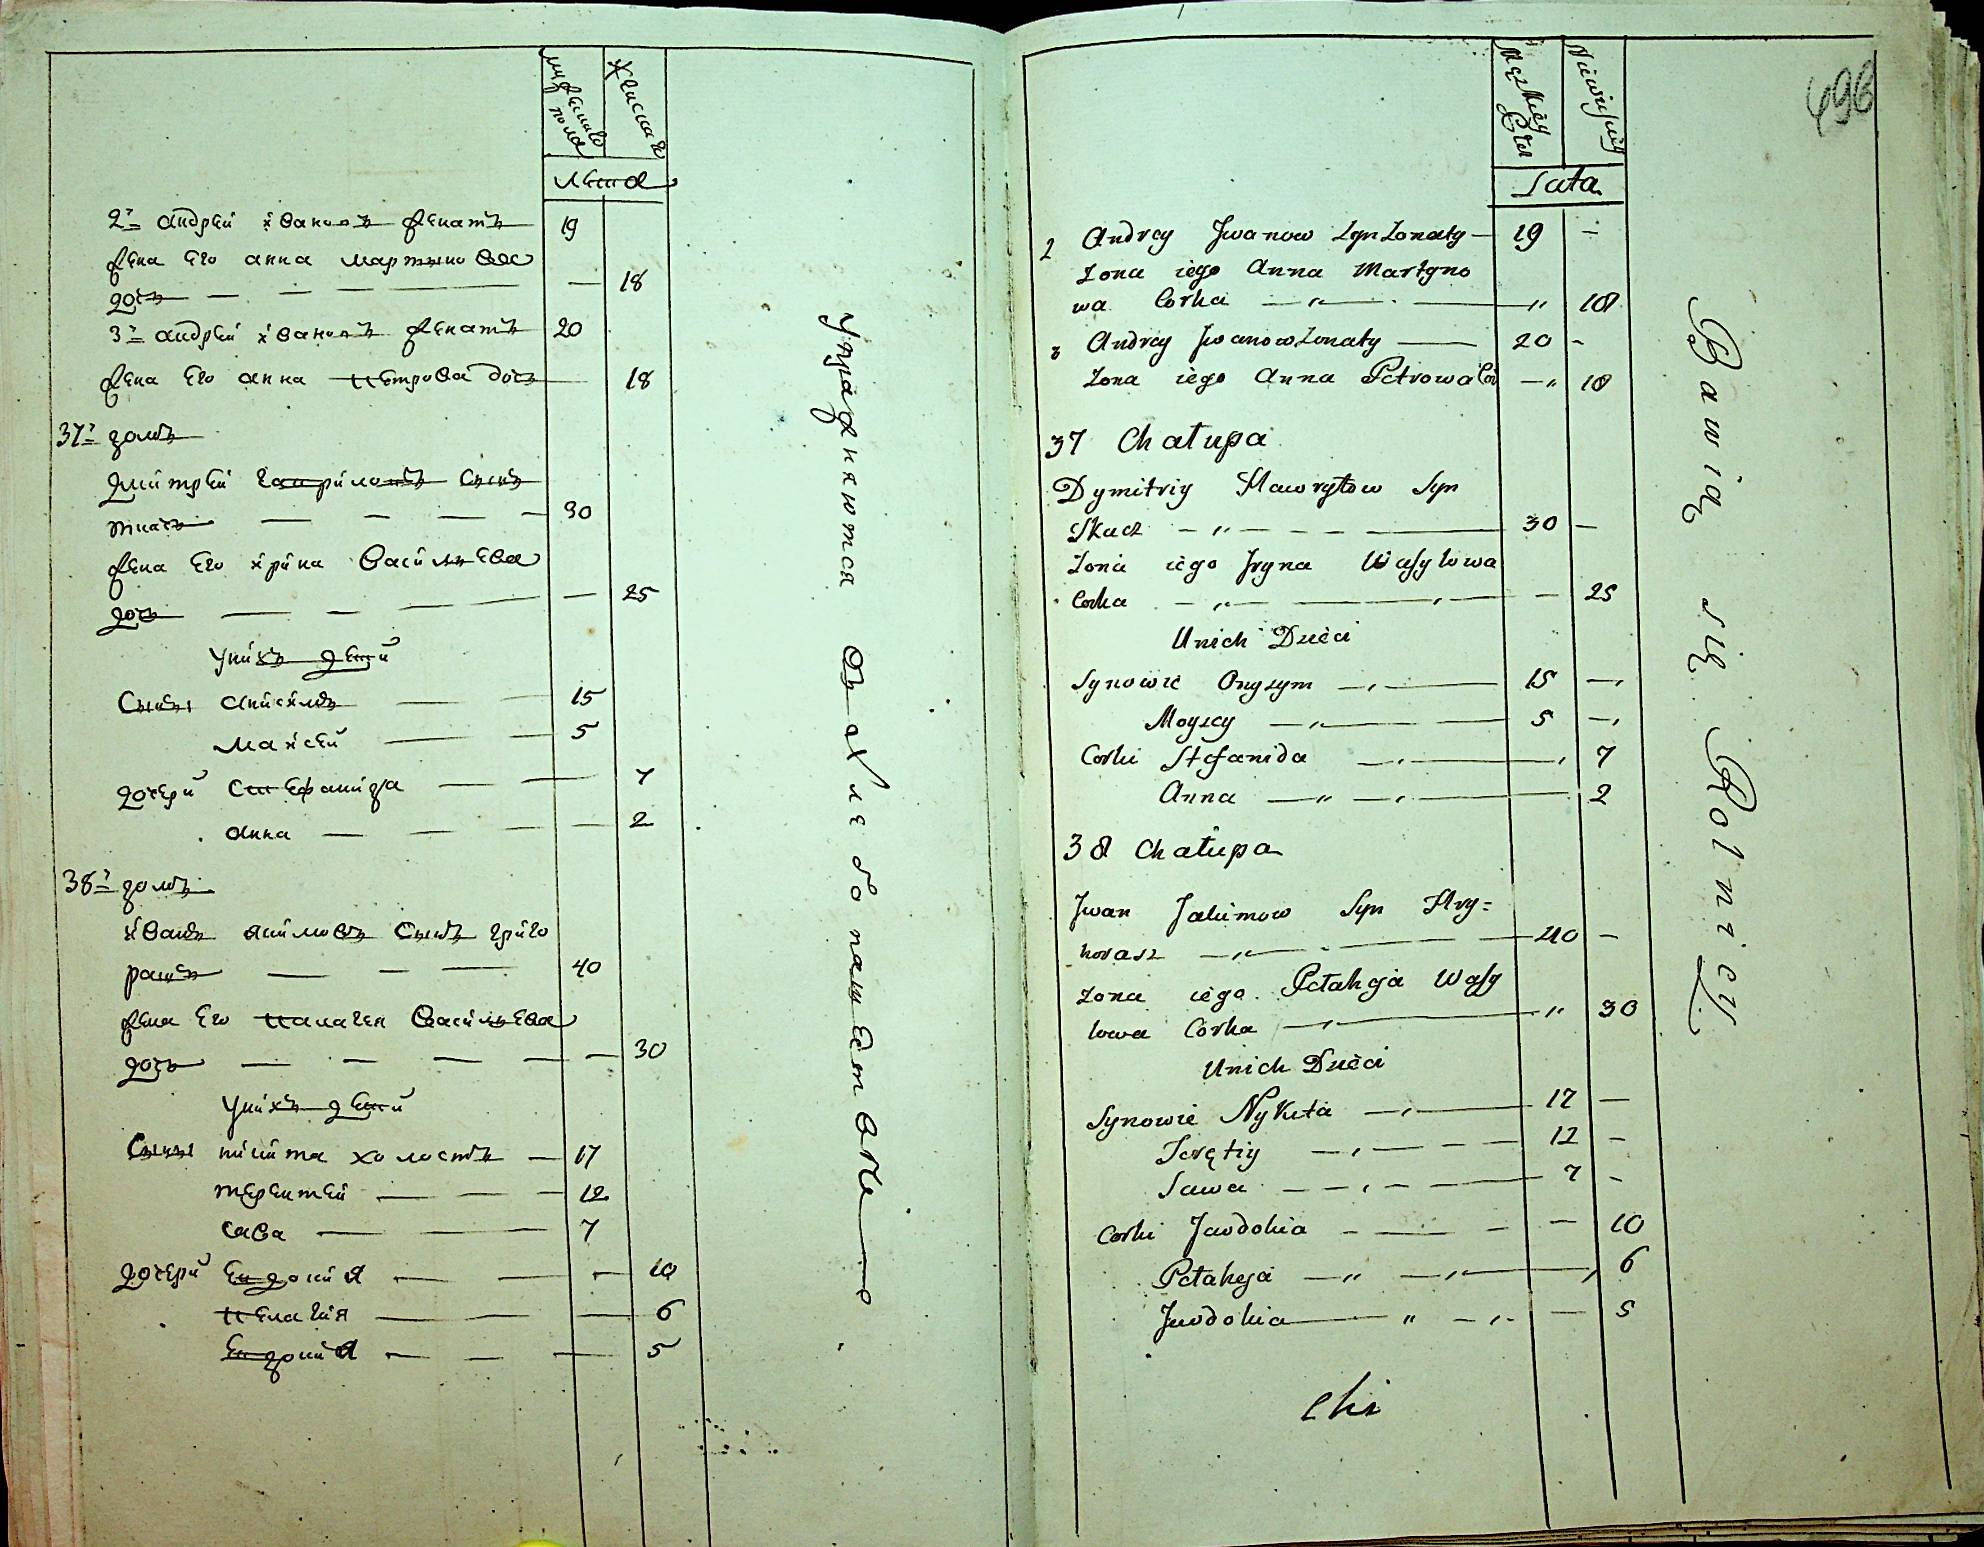 мужеска пола
женска
лета
2й андрей иванов женатъ 19
жена его анна мартинова
дочь 18
3й андрей иванов женатъ 20
жена его анна петрова дочь 18
37й домъ
дмитрей гаврилов сынъ
ткачь 30
жена его ирина василиева
дочь 25
у них детей
сыны анисимъ 15
майсей 5
дочери стефанида 7
анна 2
38й домъ
иванъ якимовъ сынъ григо
рашъ 40
жена его палагея василиева
дочь 30
у них детей
сыны никита холостъ 17
терентей 12
сава 7
дочери евдокия 10
пелагия 6
евдокия 5
упражняются в хлебопашестве
496
Męzkiey Płci
Niewieściy
Lata
2 Andrey Jwanow Syn Zonaty 19
Zona iego Anna Martyno
wa Corka 18
3 Andrey Jwanow Zonaty 20
Zona iego Anna Petrowa Cor 18
37 Chałupa
Dymitriy Hawryłow Syn
Tkacz 30
Zona iego Jryna Wasylowa
Corka 25
Unich Dzieci
Synowie Onyzym 15
Moyzey 5
Corki Stefanida 7
Anna 2
38 Chałupa
Jwan Jakimow Syn Hry=
horasz 40
Zona iego Pełahgia Wasy
lowa Corka 30
Unich Dzieci
Synowie Nykita 17
Teretiy 12
Sawa 7
Corki Jewdokia 10
Pełahgia 6
Jewdokia 5
Bawią się Rolnicy